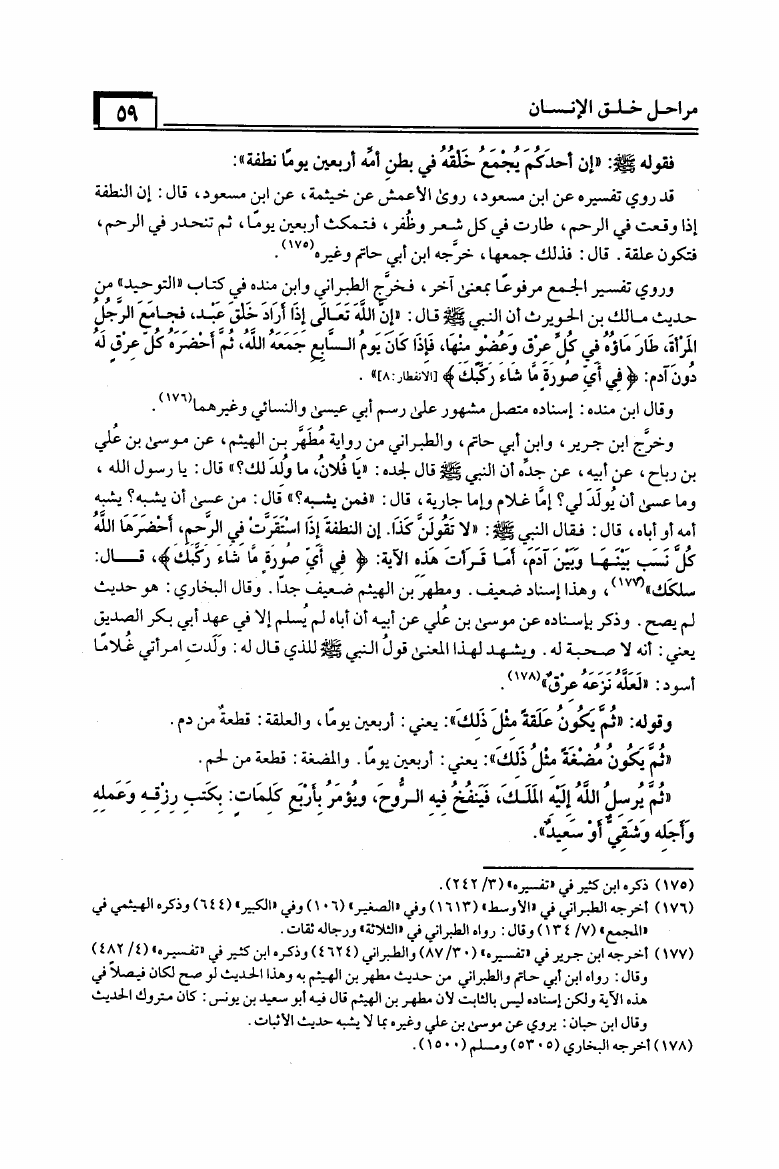 مراحل خلق الإنسان
٥٩
فقوله ﷺ: «إن أحدَكُم يُجْمَعُ خَلْقُهُ في بطنِ أمِّه أربعين يومًا نطفة»:
قد روي تفسيره عن ابن مسعود، روىٰ الأعمش عن خيثمة، عن ابن مسعود، قال: إن النطفة
إذا وقعت في الرحم، طارت في كل شعر وظُفر، فتمكث أربعين يومًا، ثم تنحدر في الرحم،
فتكون علقة. قال: فذلك جمعها، خرَّجه ابن أبي حاتم وغيره(١٧٥).
وروي تفسير الجمع مرفوعًا بمعنىٰ آخر، فخرَّج الطبراني وابن منده في كتاب «التوحيد» من
حديث مالك بن الحويرث أن النبي ﷺ قال: «إنَّ اللَّهَ تَعَالَى إِذَا أَرَادَ خَلْقَ عَبْد، فجامَعَ الرَّجلُ
المَرْأةَ، طَارَ مَاؤُهُ في كُلِّ عرْق وَعُضْو منْهَا، فَإِذَا كَانَ يَومُ السَّابِعِ جَمَعَهُ اللَّهُ، ثُمَّ أحْضَرَهُ كُلّ عرْق لَهُ
دُونَ آدم: ﴿ فِي أَيِّ صُورَةٍ مَّا شَاءَ رَكَّبَكَ ﴾ [الانفطار: ٨]» .
وقال ابن منده: إسناده متصل مشهور علىٰ رسم أبي عيسىٰ والنسائي وغيرهما(١٧٦).
وخرَّج ابن جرير، وابن أبي حاتم، والطبراني من رواية مُطَهَّر بن الهيثم، عن موسىٰ بن عُلي
بن رباح، عن أبيه، عن جدِّه أن النبي ﷺ قال لجده: «يَا فُلانُ، ما وُلدَ لك؟» قال: يا رسول الله ،
وما عسىٰ أن يُولَدَ لي؟ إمَّا غلام وإما جارية، قال: «فمن يشبه؟» قال: من عسىٰ أن يشبه؟ يشبه
أمه أو أباه، قال: فقال النبي ﷺ: «لا تَقُولَنَّ كَذَا. إن النطفةَ إذَا اسْتَقَرَّتْ في الرَّحم، أحْضَرَهَا اللَّهُ
كُلَّ نَسَب بَيْنَهَا وَبَيْنَ آدَمَ، أمَا قَرَأتَ هَذه الآيةَ: ﴿ فِي أَيِّ صُورَةٍ مَّا شَاءَ رَكَّبَكَ ﴾، قال:
سلكك»(١٧٧)، وهذا إسناد ضعيف. ومطهر بن الهيثم ضعيف جدًا. وقال البخاري: هو حديث
لم يصح. وذكر بإسناده عن موسىٰ بن عُلي عن أبيه أن أباه لم يُسلم إلا في عهد أبي بكر الصديق
يعني: أنه لا صحبة له. ويشهد لهذا المعنىٰ قولُ النبي ﷺ للذي قال له: وَلَدت امرأتي غُلامًا
أسود: «لَعَلَّهُ نَزَعَهُ عِرْقٌ»(١٧٨).
وقوله: «ثُمَّ يَكُونُ عَلَقةً مثْلَ ذَلكَ»: يعني: أربعين يومًا، والعلقة: قطعةٌ من دم.
«ثُمَّ يَكُونُ مُضْغَةً مثْلُ ذَلكَ»: يعني: أربعين يومًا. والمضغة: قطعة من لحم.
«ثُمَّ يُرسلُ اللَّهُ إلَيْه المَلَكَ، فَيَنفُخُ فيه الرُّوحَ، ويُؤمَرُ بأَرْبَعِ كَلمَاتٍ: بكَتبِ رِزْقه وَعَمله
وَأَجَله وَشَقيٌّ أَوْ سَعيدٌ».
(١٧٥) ذكره ابن كثير في «تفسيره» (٣/ ٢٤٢).
(١٧٦) أخرجه الطبراني في «الأوسط» (١٦١٣) وفي «الصغير» (١٠٦) وفي «الكبير» (٦٤٤) وذكره الهيثمي في
«المجمع» (٧/ ١٣٤) وقال: رواه الطبراني في «الثلاثة» ورجاله ثقات.
(١٧٧) أخرجه ابن جرير في «تفسيره» (٣٠/ ٨٧) والطبراني (٤٦٢٤) وذكره ابن كثير في «تفسيره» (٤/ ٤٨٢)
وقال: رواه ابن أبي حاتم والطبراني من حديث مطهر بن الهيثم به وهذا الحديث لو صح لكان فيصلاً في
هذه الآية ولكن إسناده ليس بالثابت لأن مطهر بن الهيثم قال فيه أبو سعيد بن يونس: كان متروك الحديث
وقال ابن حبان: يروي عن موسىٰ بن علي وغيره بما لا يشبه حديث الأثبات.
(١٧٨) أخرجه البخاري (٥٣٠٥) ومسلم (١٥٠٠).